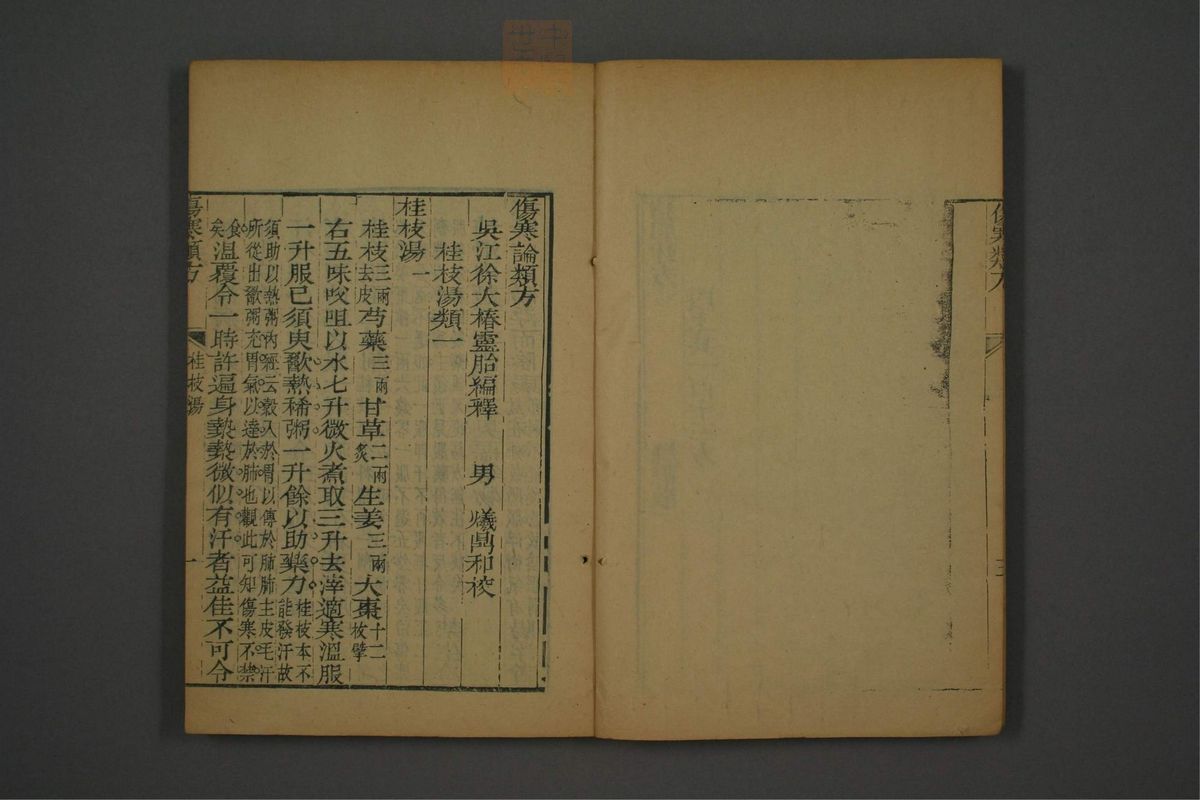 傷寒類方
三
傷寒論類方
吳江徐大椿靈胎編釋 男 爔鼎和校
桂枝湯類一
桂枝湯一
桂枝三兩去皮芍藥三兩甘草二兩炙生姜三兩大棗十二枚擘
右五味㕮咀以水七升微火煮取三升去滓適寒溫服
一升服已須臾歠熱稀粥一升餘以助藥力桂枝本不能發汗故
須助以熱粥內經云穀入於胃以傳於肺肺主皮毛汗
所從出歠粥充胃氣以達於肺也觀此可知傷寒不禁
食矣溫覆令一時許遍身漐漐微似有汗者益佳不可令
傷寒類方
桂枝湯
一